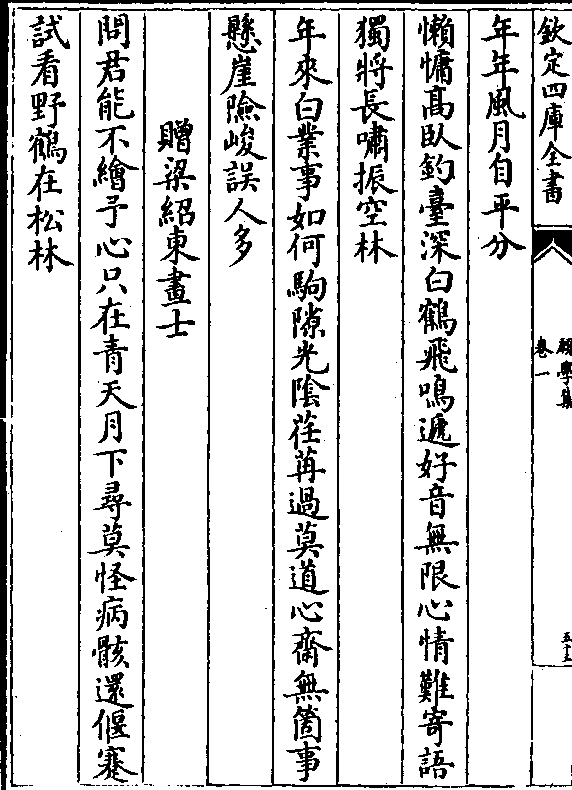 欽定四庫全書
願學集
卷一
五十三
年年風月自平分
懶慵髙臥釣臺深白鶴飛鳴遞好音無限心情難寄語
獨將長嘯振空林
年來白業事如何駒隙光陰荏苒過莫道心齋無箇事
懸崖險峻誤人多
贈梁紹東畫士
問君能不繪予心只在青天月下尋莫怪病骸還偃蹇
試看野鶴在松林